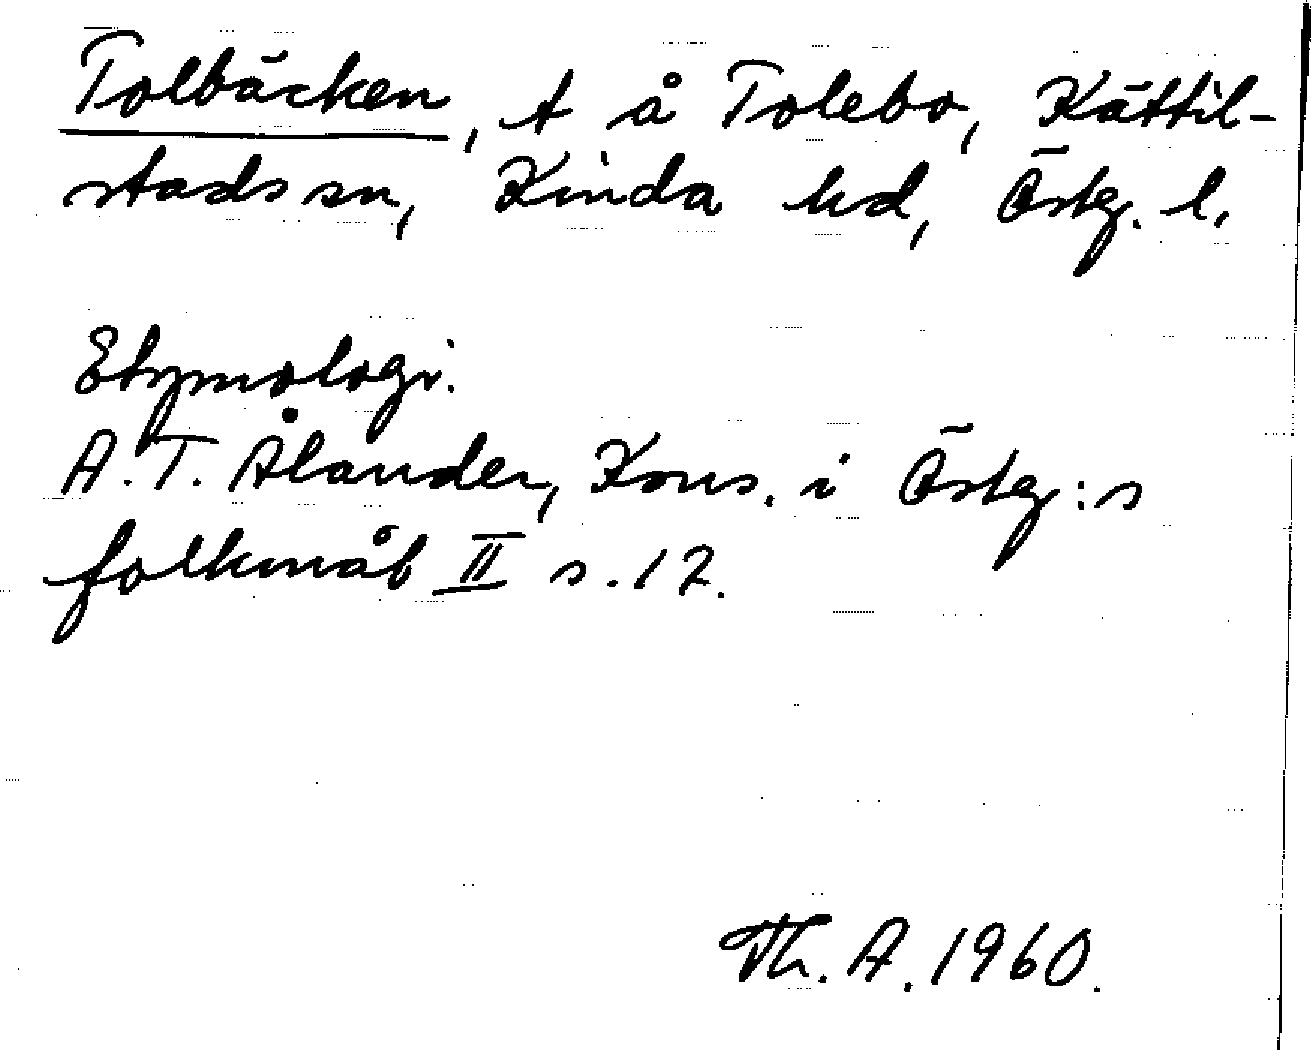 Tolbäcken, t å Tolebo, Kättil-
stads sn, Kinda hd, Östg. l.
Etymologi.
A. T. Ålander, Kons. i Östg:s
folkmål II s. 12.
Th. A. 1960.